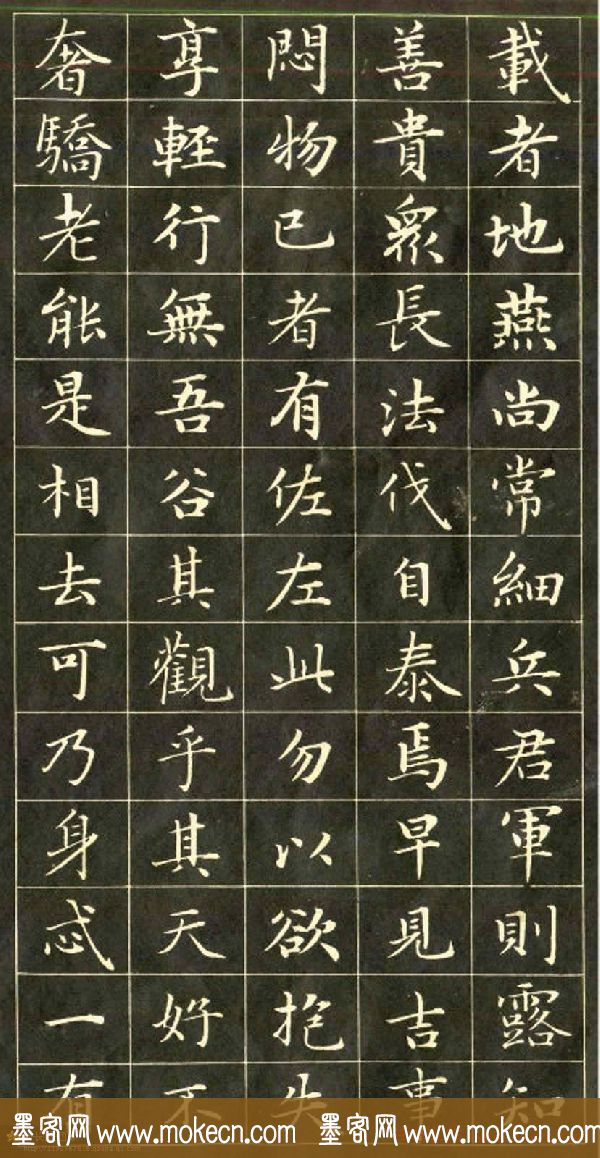 載者地燕尚常細兵君軍則露知
善貴眾長法伐自泰焉早見吉事
悶物已者有佐左此勿以欲抱失
享輕行無吾谷其觀乎其天好不
奢驕老能是相去可乃身忒一有
墨客网 www.mokecn.com 墨客网 www.mokecn.com